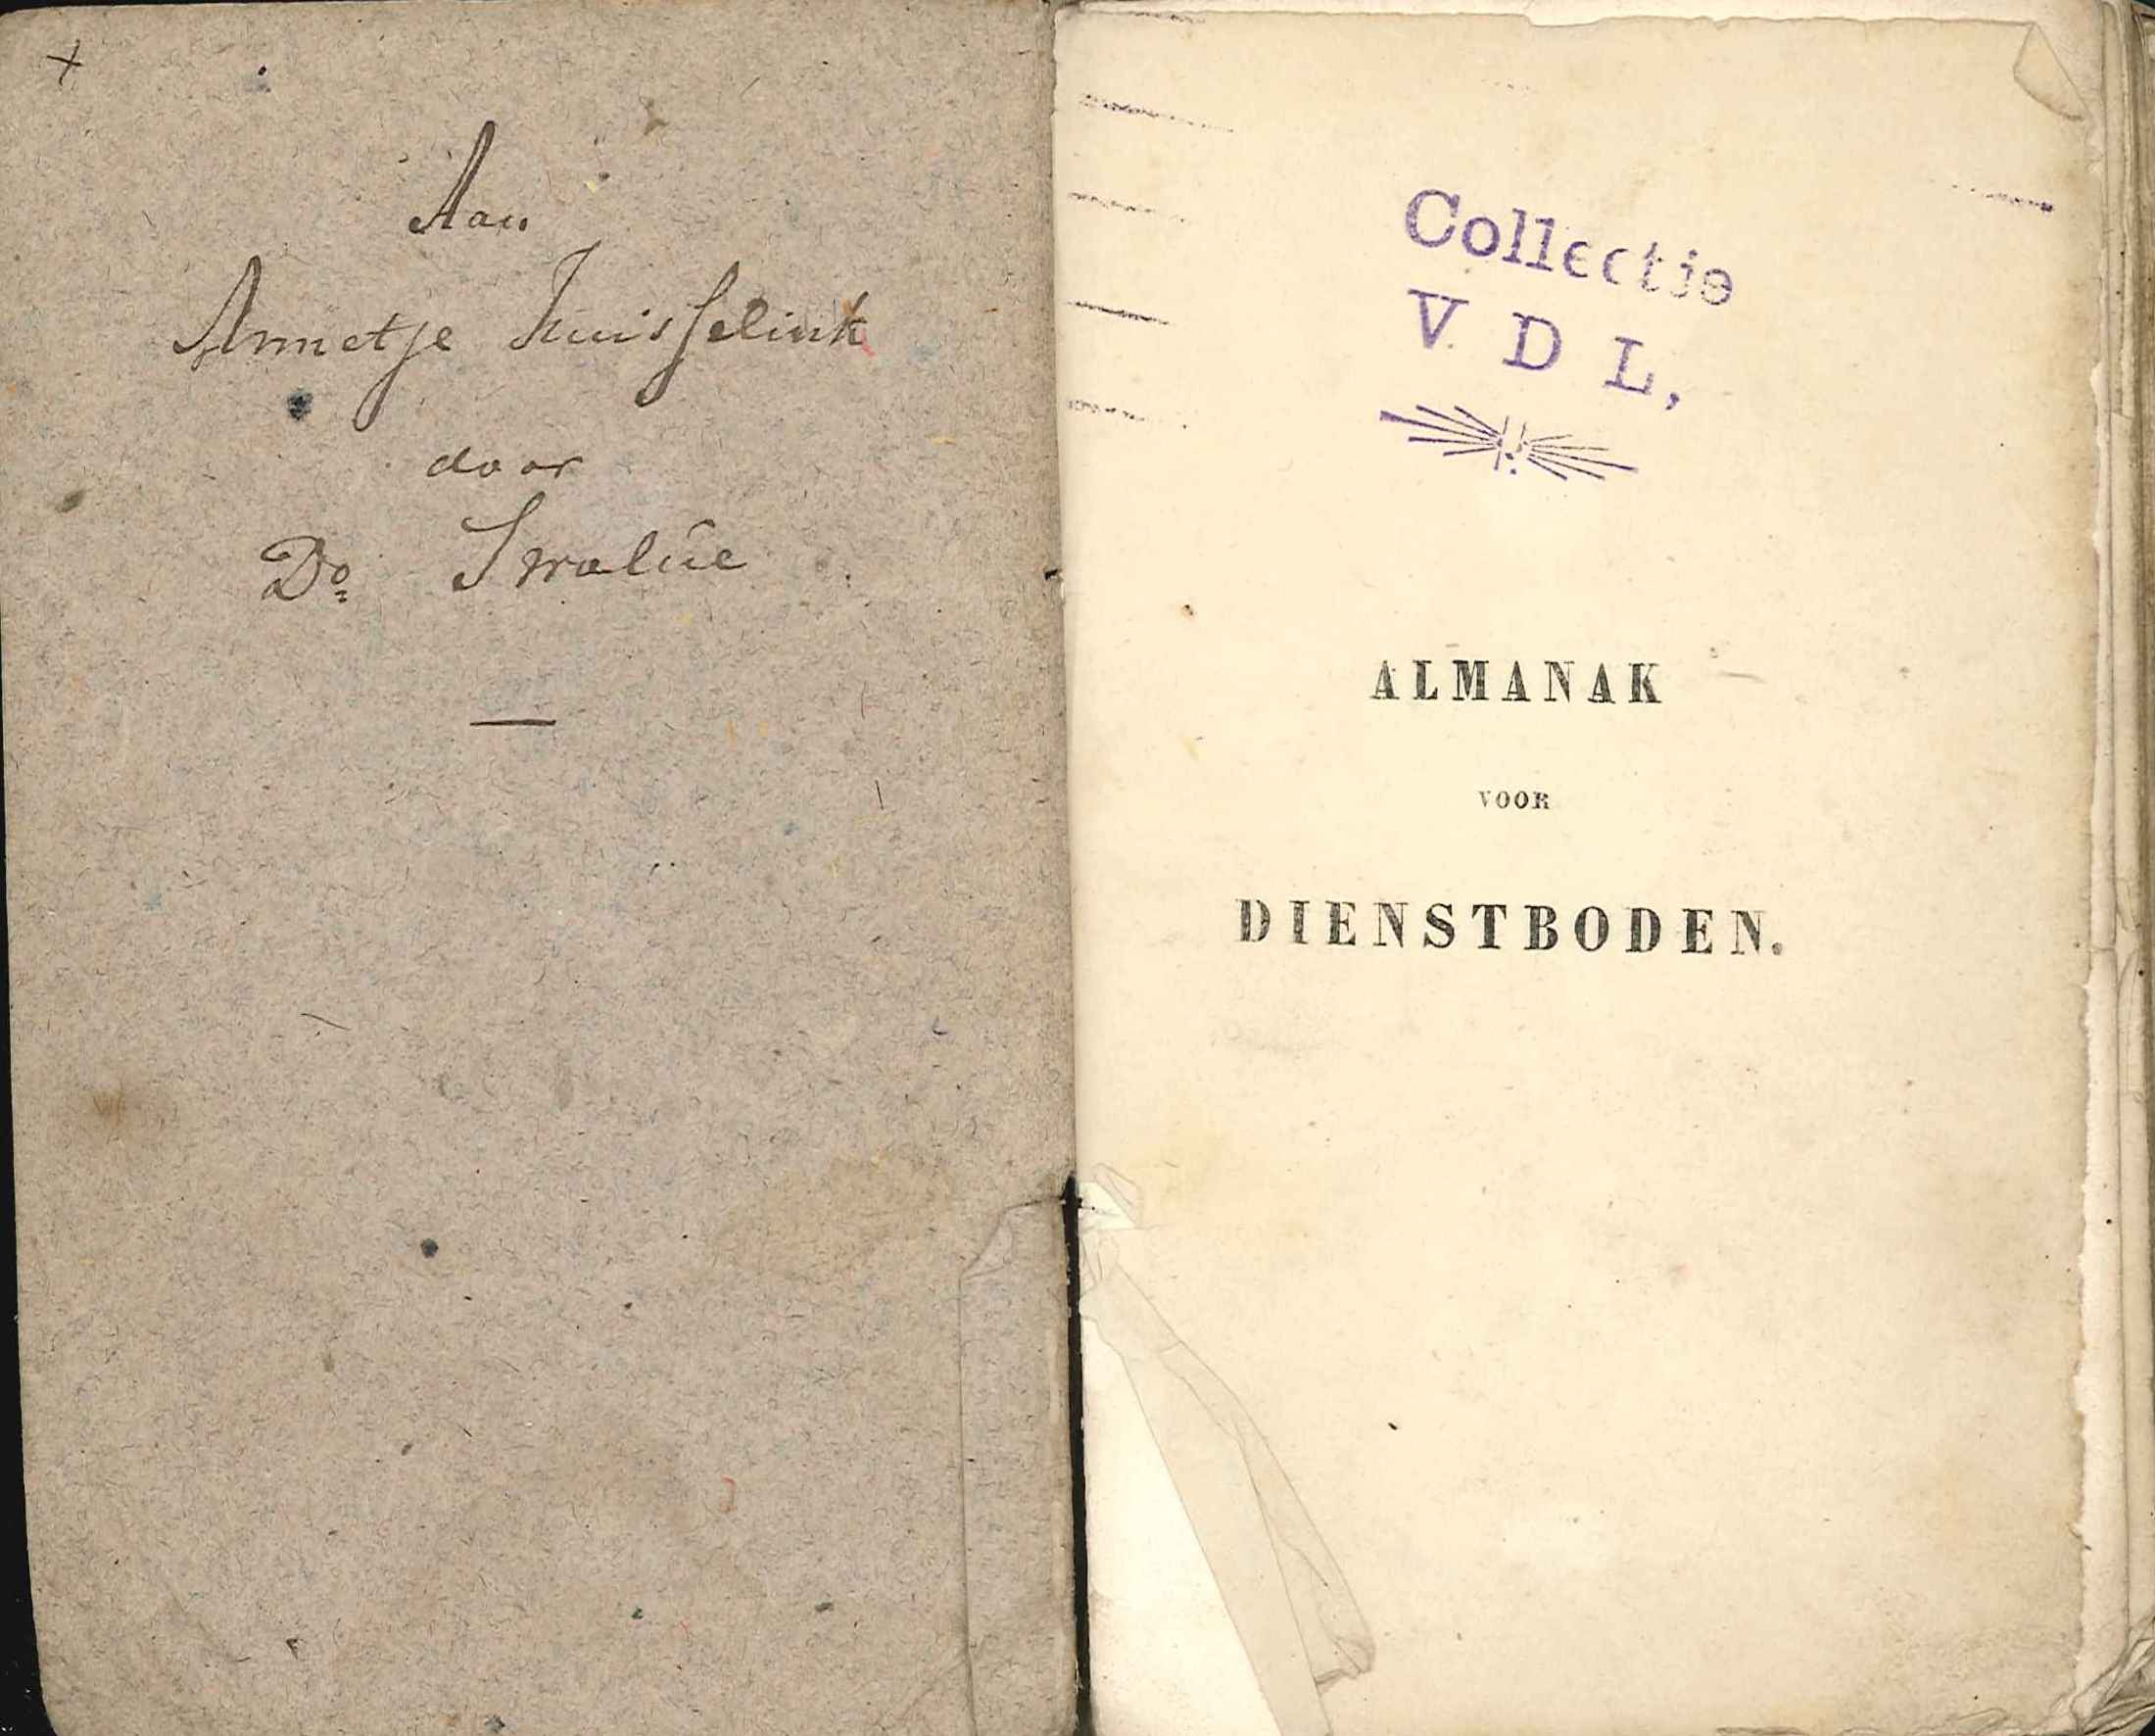 Aan
Annetje Huisselink
door
Do Swalûe
Collectie
V D L,
ALMANAK
VOOR
DIENSTBODEN.